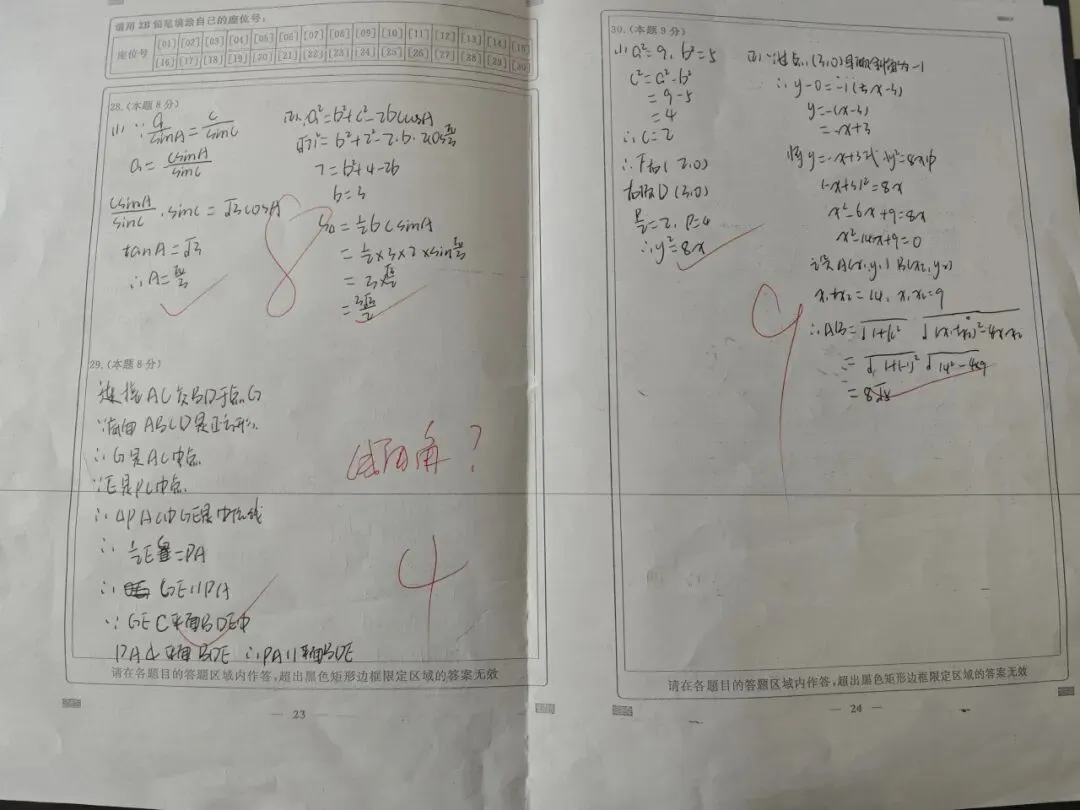 请用 2B 铅笔填涂自己的座位号：
座位号 [01] [02] [03] [04] [05] [06] [07] [08] [09] [10] [11] [12] [13] [14] [15]
[16] [17] [18] [19] [20] [21] [22] [23] [24] [25] [26] [27] [28] [29] [30]
28.（本题 8 分）
(1) ∵ a/sinA = c/sinC
a = csinA/sinC
csinA/sinC · sinC = √3 cosA
tanA = √3
∴ A = π/3
a² = b²+c²-2bccosA
7 = b²+4-2b
b = 3
= ½bcsinA
= ½×3×2×sinπ/3
= 3×√3/2
= 3√3/2
8
29.（本题 8 分）
连接AC交BD于点G
∵底面ABCD是正方形
∴ G是AC中点
∵E是PC中点
∴ △PAC中GE是中位线
∴ GE∥PA
∵ GE⊂平面BDE中
PA⊄平面BDE ∴PA∥平面BDE
二面角？
4
请在各题目的答题区域内作答，超出黑色矩形边框限定区域的答案无效
— 23 —
30.（本题 9 分）
(1) a²=9, b²=5
c²=a²-b²
=9-5
=4
∴ c=2
∴ F右(2,0)
右顶D(3,0)
p/2=2, P=4
∴ y²=8x
∴ y-0=-1(x-3)
y=-(x-3)
=-x+3
将y=-x+3代入y²=8x中
(-x+3)²=8x
x²-6x+9=8x
x²-14x+9=0
设A(x₁,y₁) B(x₂,y₂)
x₁+x₂=14, x₁x₂=9
∴ AB=√1+k² √(x₁+x₂)²-4x₁x₂
=√1+(-1)² √14²-4×9
9
请在各题目的答题区域内作答，超出黑色矩形边框限定区域的答案无效
— 24 —